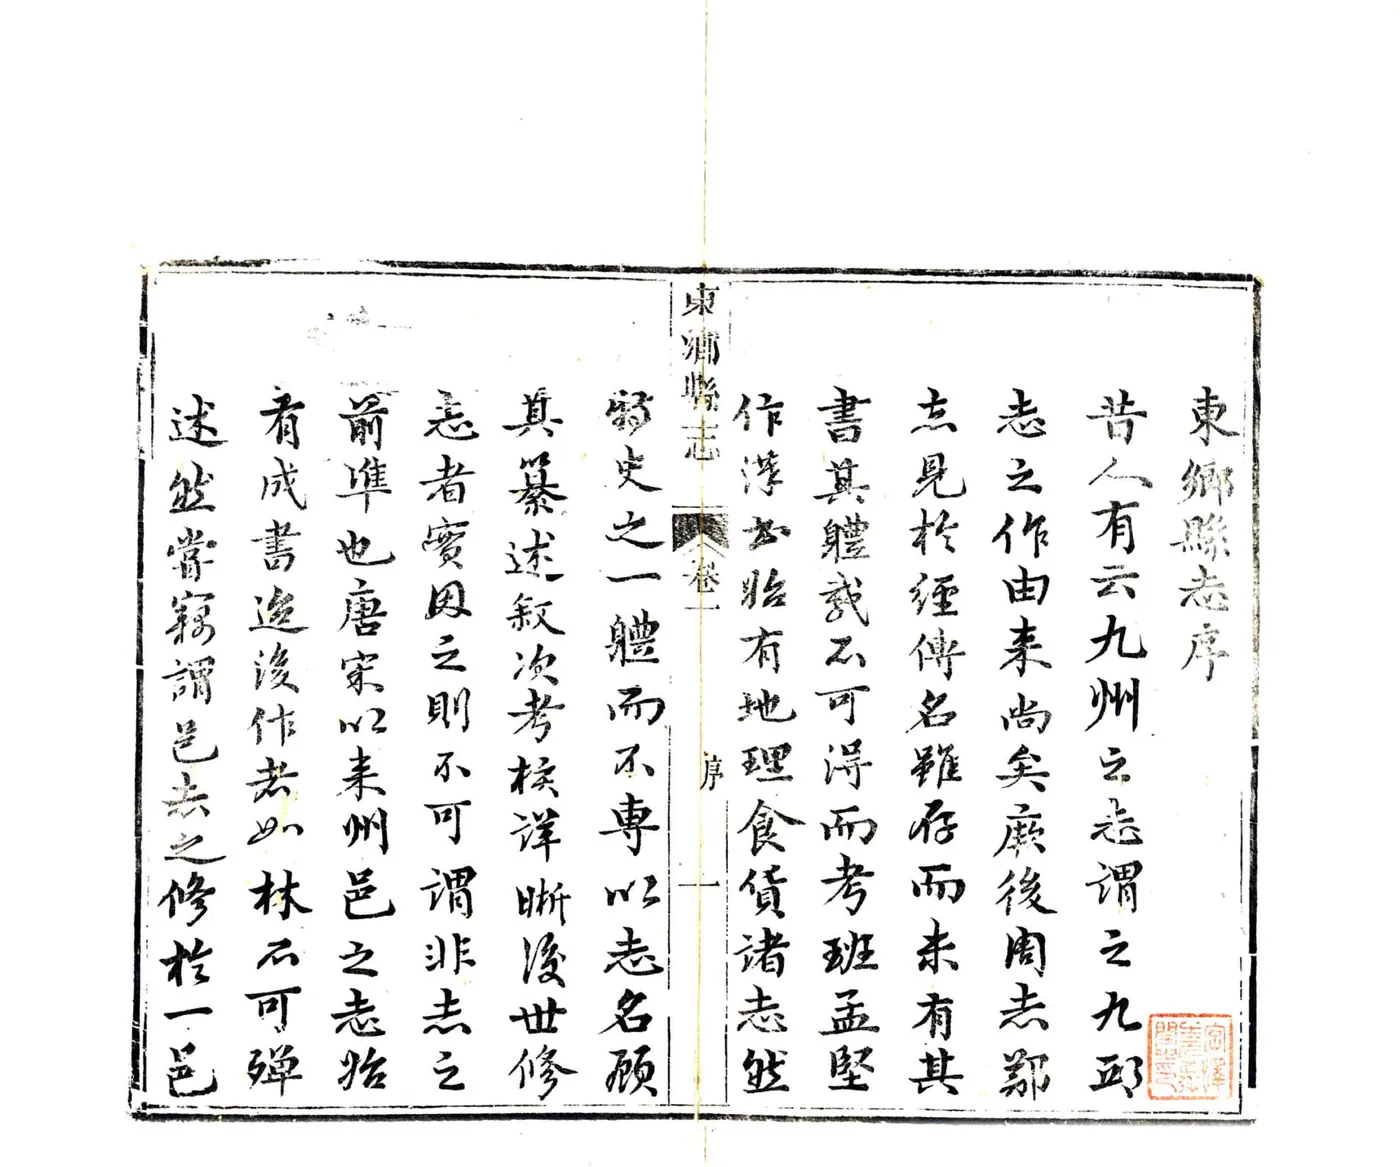 東鄉縣志序
昔人有云九州之志謂之九邱
志之作由来尚矣厥後周志鄭
志見於經傳名雖存而未有其
書其體裁不可得而考班孟堅
作漢書始有地理食貨諸志然
東鄉縣志
卷一
序
一
特史之一體而不專以志名顧
其纂述叙次考核詳晰後世修
志者實因之則不可謂非志之
前準也唐宋以来州邑之志始
有成書迨後作者如林不可殫
述然嘗竊謂邑志之修於一邑